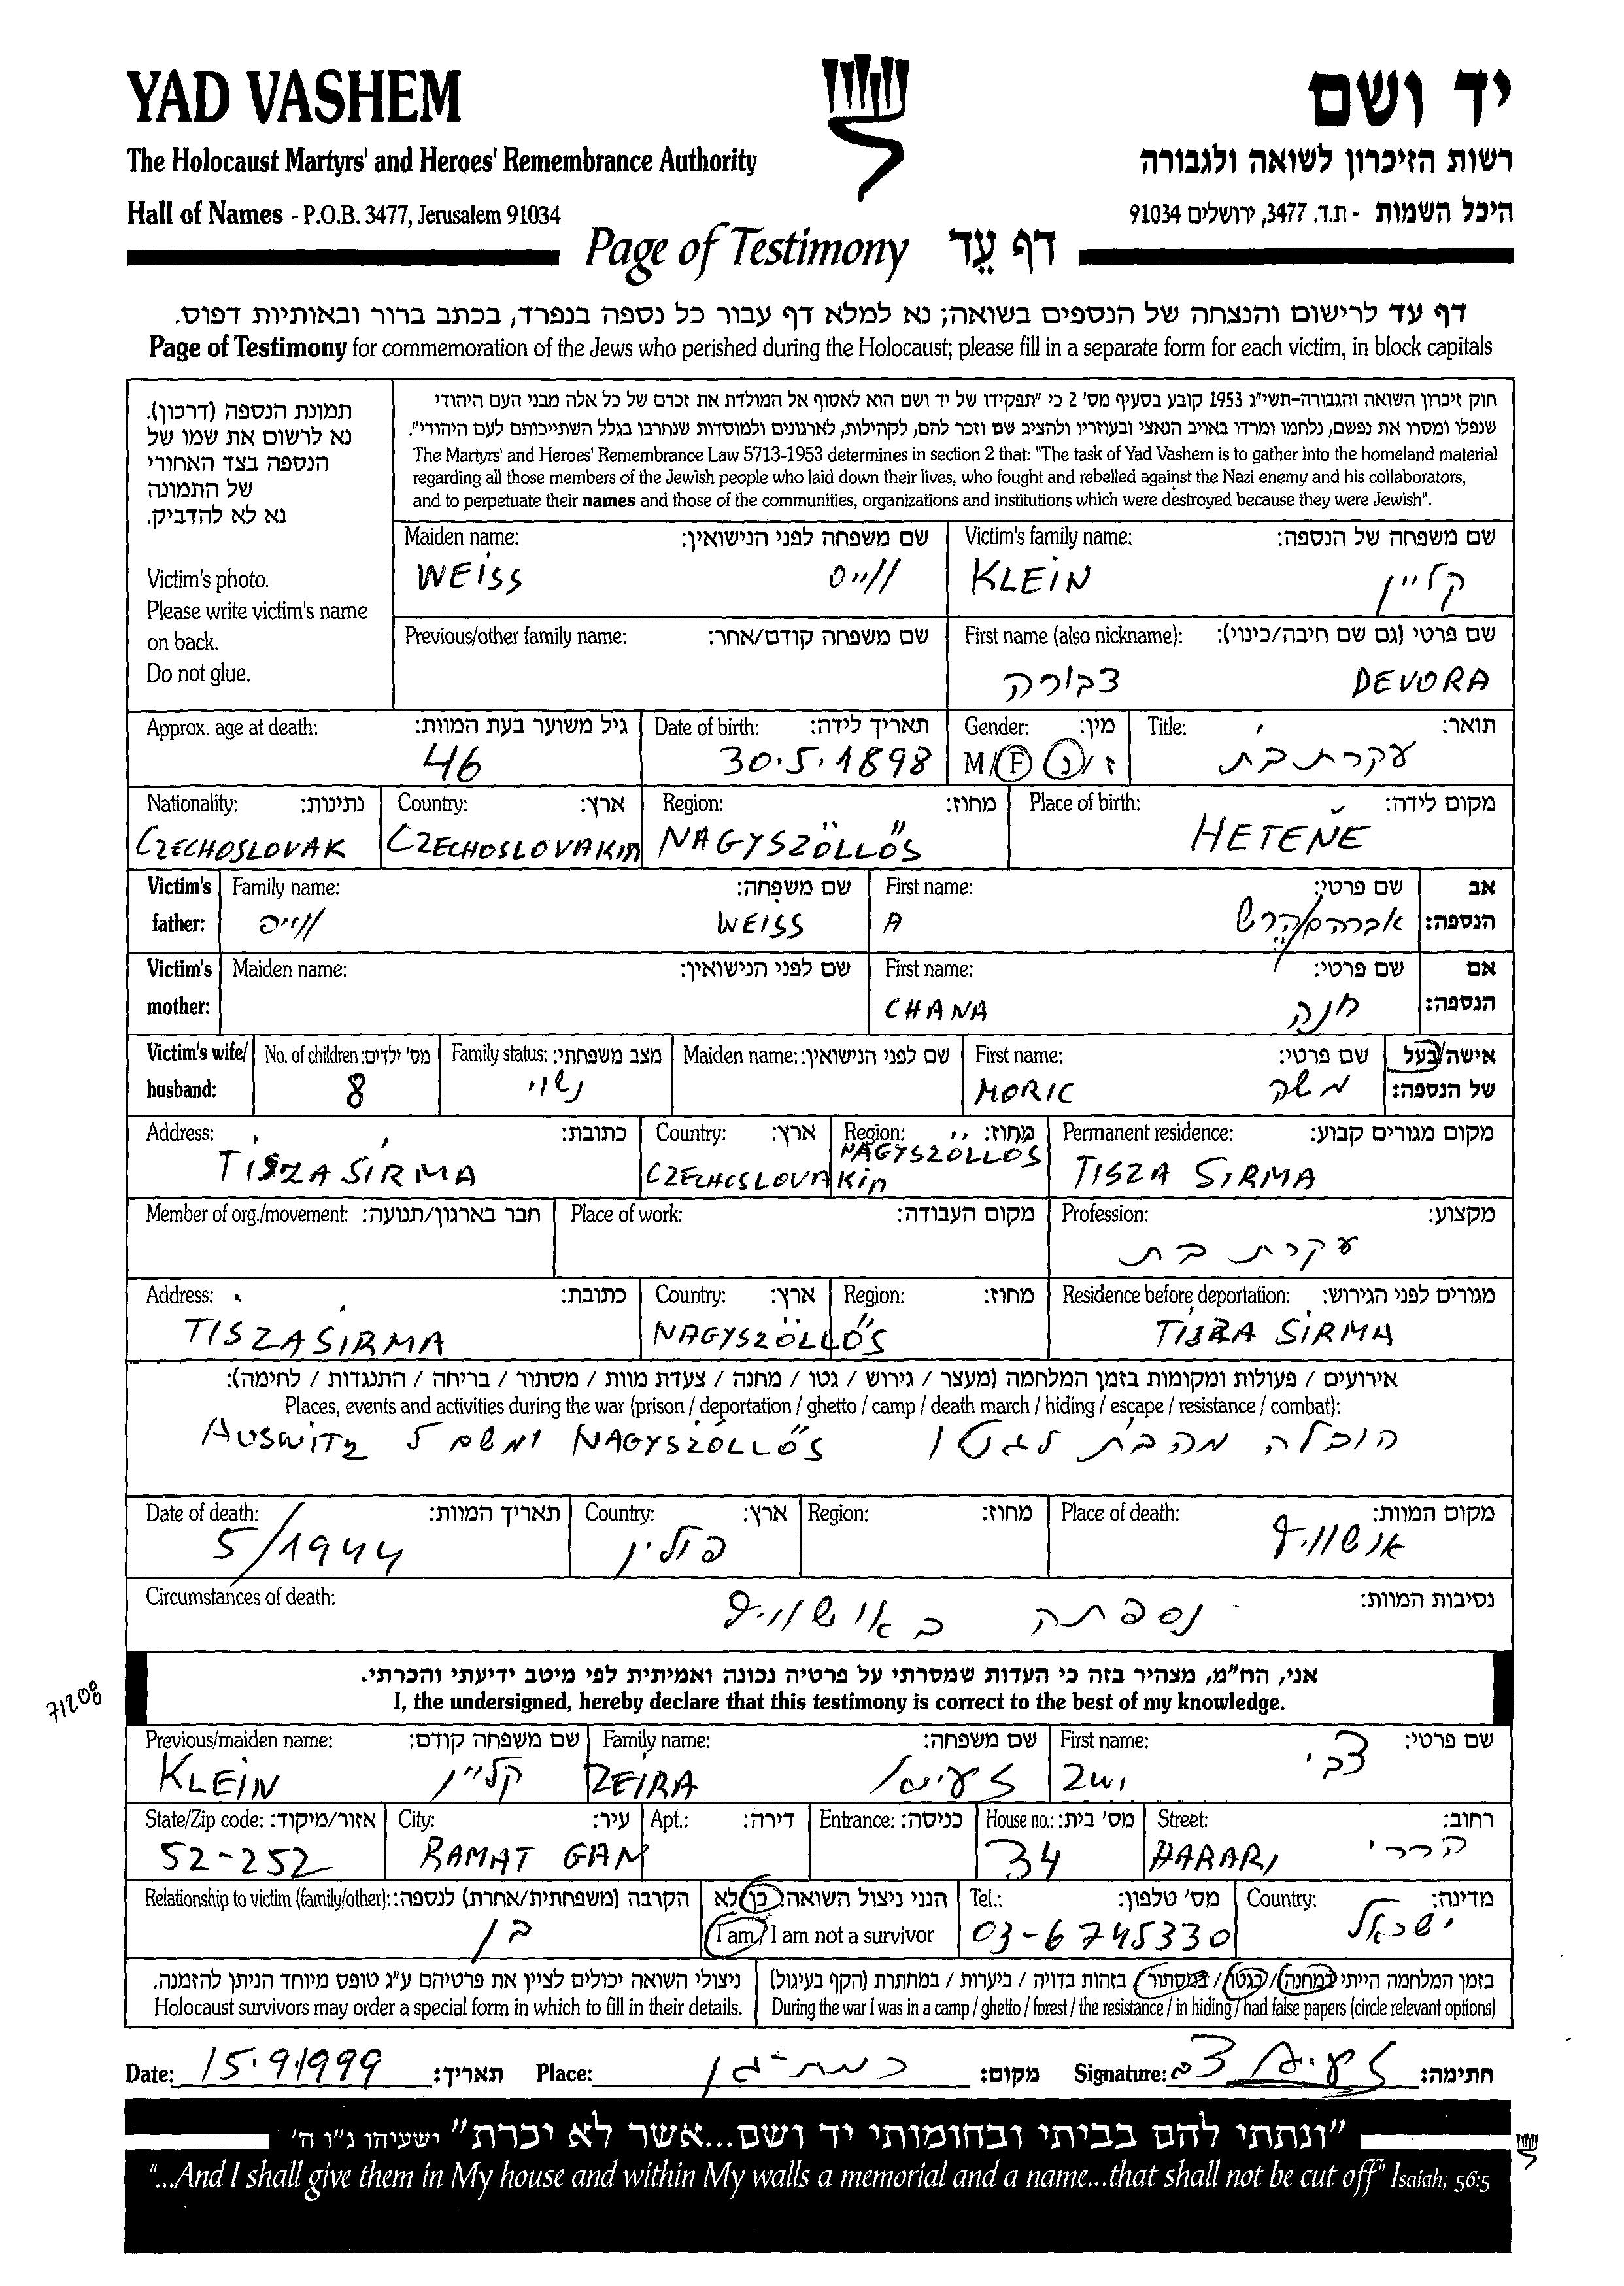 YAD VASHEM
יד ושם
The Holocaust Martyrs' and Heroes' Remembrance Authority
רשות הזיכרון לשואה ולגבורה
Hall of Names - P.O.B. 3477, Jerusalem 91034
היכל השמות - ת.ד. 3477, ירושלים 91034
Page of Testimony דף עֵד
דף עד לרישום והנצחה של הנספים בשואה; נא למלא דף עבור כל נספה בנפרד, בכתב ברור ובאותיות דפוס.
Page of Testimony for commemoration of the Jews who perished during the Holocaust; please fill in a separate form for each victim, in block capitals
תמונת הנספה (דרכון).
נא לרשום את שמו של
הנספה בצד האחורי
של התמונה
נא לא להדביק.
Victim's photo.
Please write victim's name
on back.
Do not glue.
חוק זיכרון השואה והגבורה-תשי"ג 1953 קובע בסעיף מס' 2 כי "תפקידו של יד ושם הוא לאסוף אל המולדת את זכרם של כל אלה מבני העם היהודי
שנפלו ומסרו את נפשם, נלחמו ומרדו באויב הנאצי ובעוזריו ולהציב שם וזכר להם, לקהילות, לארגונים ולמוסדות שנחרבו בגלל השתייכותם לעם היהודי".
The Martyrs' and Heroes' Remembrance Law 5713-1953 determines in section 2 that: "The task of Yad Vashem is to gather into the homeland material
regarding all those members of the Jewish people who laid down their lives, who fought and rebelled against the Nazi enemy and his collaborators,
and to perpetuate their names and those of the communities, organizations and institutions which were destroyed because they were Jewish".
Maiden name: שם משפחה לפני הנישואין: Victim's family name: שם משפחה של הנספה:
WEISS ווייס KLEIN קליין
Previous/other family name: שם משפחה קודם/אחר: First name (also nickname): שם פרטי (גם שם חיבה/כינוי):
דבורה DEVORA
Approx. age at death: גיל משוער בעת המוות: Date of birth: תאריך לידה: Gender: מין: Title: תואר:
46 30.5.1898 M/F ז/נ עקרת בית
Nationality: נתינות: Country: ארץ: Region: מחוז: Place of birth: מקום לידה:
CZECHOSLOVAK CZECHOSLOVAKIA NAGYSZÖLLŐS HETEŇE
Victim's father: Family name: שם משפחה: First name: שם פרטי: אב הנספה:
ווייס WEISS A אברהם/הירש
Victim's mother: Maiden name: שם לפני הנישואין: First name: שם פרטי: אם הנספה:
CHANA חנה
Victim's wife/ husband: No. of children: מס' ילדים: Family status: מצב משפחתי: Maiden name: שם לפני הנישואין: First name: שם פרטי: אישה/בעל של הנספה:
8 נשוי MORIC משה
Address: כתובת: Country: ארץ: Region: מחוז: Permanent residence: מקום מגורים קבוע:
TISZA SIRMA CZECHOSLOVAKIA NAGYSZÖLLÖS TISZA SIRMA
Member of org./movement: חבר בארגון/תנועה: Place of work: מקום העבודה: Profession: מקצוע:
עקרת בית
Address: כתובת: Country: ארץ: Region: מחוז: Residence before deportation: מגורים לפני הגירוש:
TISZA SIRMA NAGYSZÖLLŐS TISZA SIRMA
אירועים / פעולות ומקומות בזמן המלחמה (מעצר / גירוש / גטו / מחנה / צעדת מוות / מסתור / בריחה / התנגדות / לחימה):
Places, events and activities during the war (prison / deportation / ghetto / camp / death march / hiding / escape / resistance / combat):
הובלה מהבית לגטו NAGYSZÖLLŐS ומשם ל AUSWITZ
Date of death: תאריך המוות: Country: ארץ: Region: מחוז: Place of death: מקום המוות:
5/1944 פולין אושוויץ
Circumstances of death: נסיבות המוות:
נספתה באושוויץ
אני, הח"מ, מצהיר בזה כי העדות שמסרתי על פרטיה נכונה ואמיתית לפי מיטב ידיעתי והכרתי.
I, the undersigned, hereby declare that this testimony is correct to the best of my knowledge.
71208
Previous/maiden name: שם משפחה קודם: Family name: שם משפחה: First name: שם פרטי:
KLEIN קליין ZEIRA זעירא צבי
State/Zip code: אזור/מיקוד: City: עיר: Apt.: דירה: Entrance: כניסה: House no.: מס' בית: Street: רחוב:
52-252 RAMAT GAN 34 HARARI הררי
Relationship to victim (family/other): הקרבה (משפחתית/אחרת) לנספה: הנני ניצול השואה: כן/לא Tel.: מס' טלפון: Country: מדינה:
בן I am/I am not a survivor 03-6745330 ישראל
ניצולי השואה יכולים לציין את פרטיהם ע"ג טופס מיוחד הניתן להזמנה. בזמן המלחמה הייתי במחנה/בגטו/במסתור/ בזהות בדויה / ביערות / במחתרת (הקף בעיגול)
Holocaust survivors may order a special form in which to fill in their details. During the war I was in a camp / ghetto / forest / the resistance / in hiding / had false papers (circle relevant options)
Date: 15.9.1999 תאריך: Place: רמת-גן מקום: Signature: זעירא צבי חתימה:
"ונתתי להם בביתי ובחומותי יד ושם...אשר לא יכרת" ישעיהו נ"ו ה'
"...And I shall give them in My house and within My walls a memorial and a name...that shall not be cut off" Isaiah, 56:5